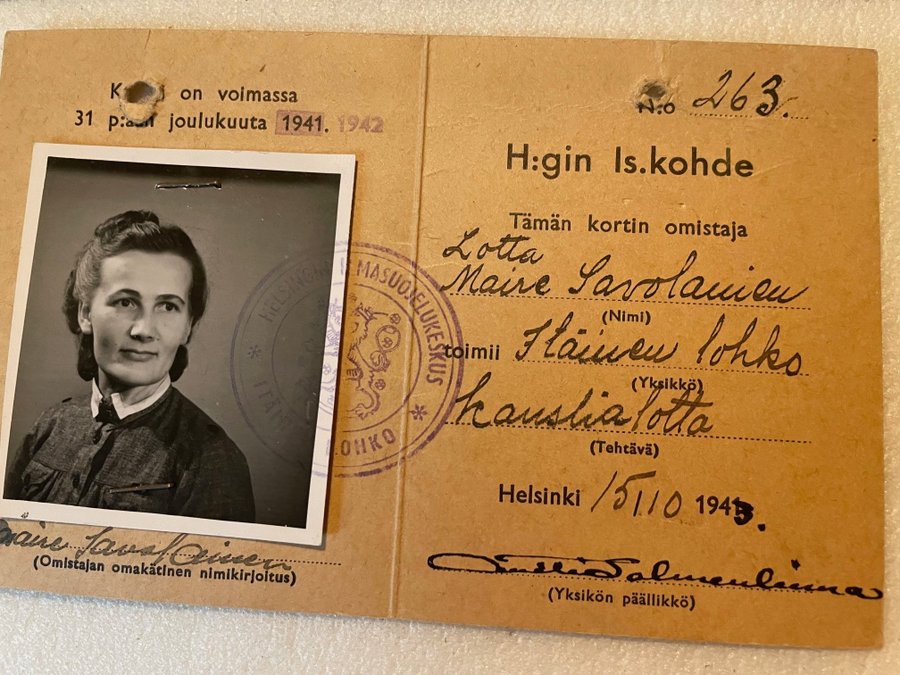 on voimassa
31 p:ään joulukuuta 1941. 1942
(Omistajan omakätinen nimikirjoitus)
Maire Savolainen
HELSINGIN ILMASUOJELUKESKUS
LOHKO
N:o 263.
H:gin Is.kohde
Tämän kortin omistaja
Lotta
Maire Savolainen
(Nimi)
toimii Itäinen lohko
(Yksikkö)
Kanslialotta
(Tehtävä)
Helsinki 15/10 1943.
(Yksikön päällikkö)